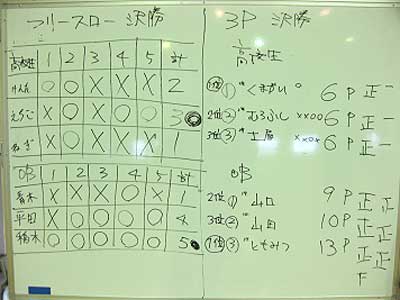 フリースロー 決勝
高校生 1 2 3 4 5 計
けんた ○ ○ X X X 2
X ○ X ○ ○ 3
X ○ X X X 1
OB 1 2 3 4 5 計
青木 X X X ○ X 1
平田 X ○ ○ ○ ○ 4
楠木 ○ ○ ○ ○ ○ 5
3P 決勝
高校生
1位 ① "くまがい" 6P 正一
2位 ② "むろふし xxoo 6P 正一
3位 ③ "土屋 xxox 6P 正一
OB
2位 ① "山口 9P 正正
3位 ② "山田 10P 正正
1位 ③ "ともみつ 13P 正正F